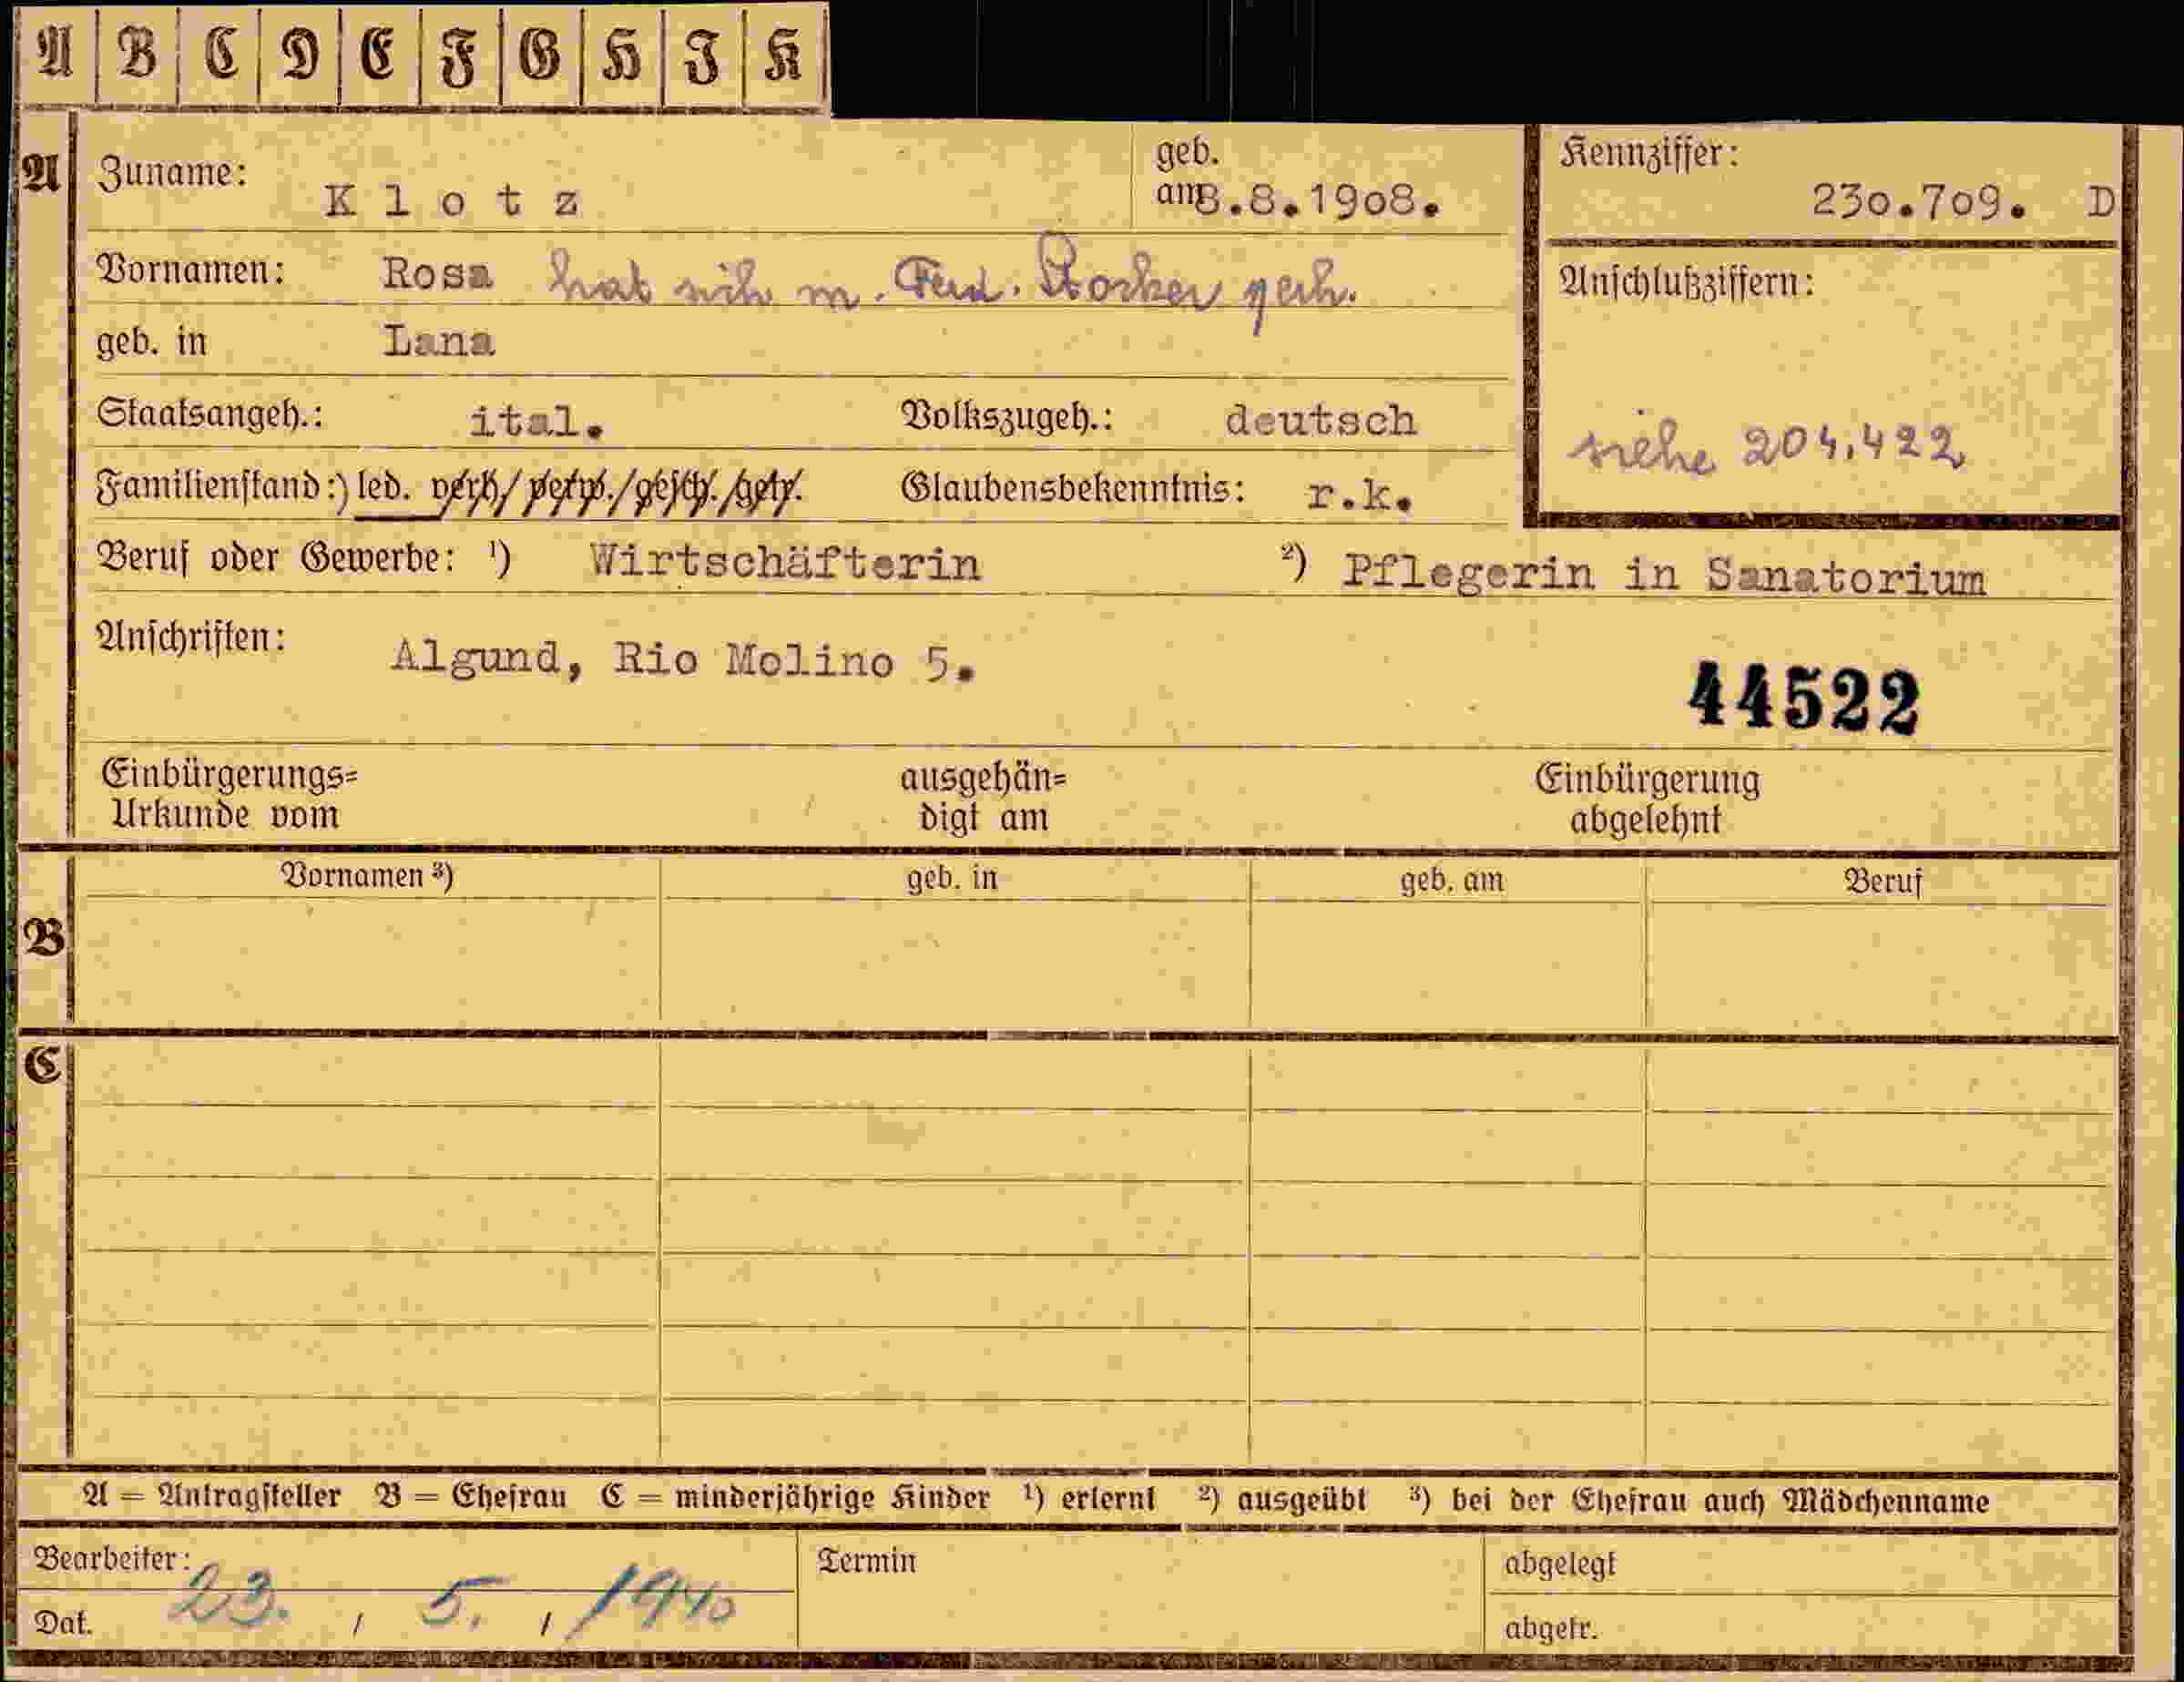 A B C D E F G H I K
A Zuname: Klotz geb. am 8.8.1908. Kennziffer: 230.709. D
Vornamen: Rosa hat sich m. Ferd. Stocker verh. Anschlußziffern:
geb. in Lana
Staatsangeh.: ital. Volkszugeh.: deutsch siehe 204.422
Familienstand:) led. verh/ verw./gesch./getr. Glaubensbekenntnis: r.k.
Beruf oder Gewerbe: ¹) Wirtschäfterin ²) Pflegerin in Sanatorium
Anschriften: Algund, Rio Molino 5.
44522
Einbürgerungs= ausgehän= Einbürgerung
Urkunde vom digt am abgelehnt
Vornamen ³) geb. in geb. am Beruf
B
C
A = Antragsteller B = Ehefrau C = minderjährige Kinder ¹) erlernt ²) ausgeübt ³) bei der Ehefrau auch Mädchenname
Bearbeiter: Termin abgelegt
Dat. 23. / 5. / 1940 abgetr.